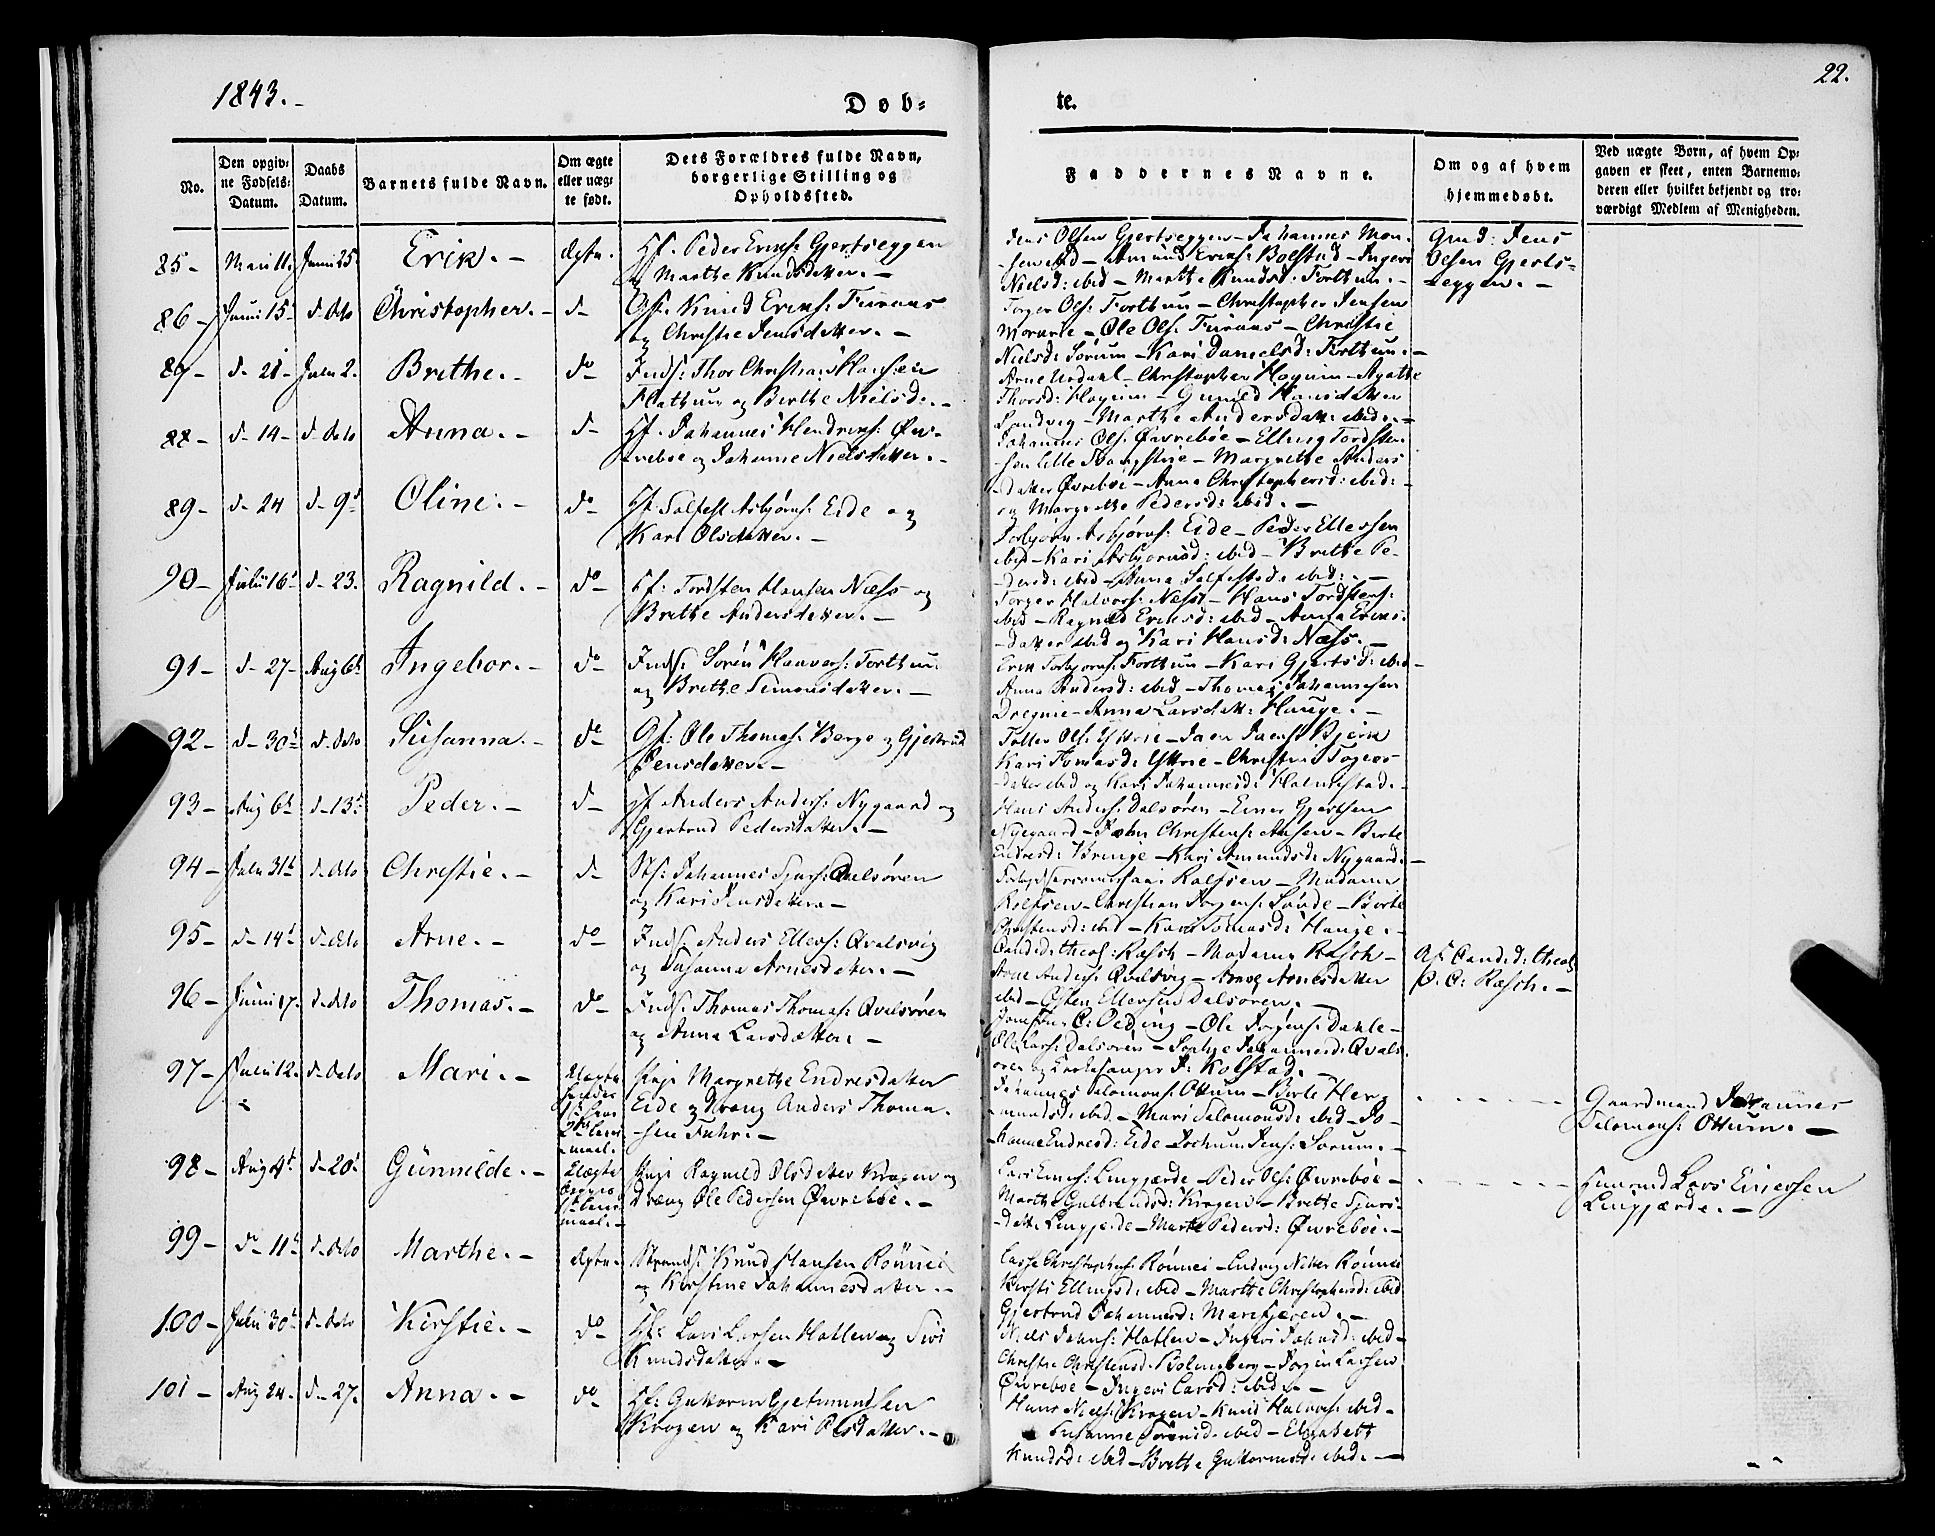 1843.-
Døb-
te.
22.
No.
Den opgiv-
ne Fødsels-
Datum.
Daabs
Datum.
Barnets fulde Navn.
Om ægte
eller uæg-
te født.
Dets Forældres fulde Navn,
borgerlige Stilling og
Opholdssted.
Faddernes Navne.
Om og af hvem
hjemmedøbt.
Ved uægte Børn, af hvem Op-
gaven er skeet, enten Barnemo-
deren eller hvilket bekjendt og tro-
værdigt Medlem af Menigheden.
85- Mai 11. Juni 25. Erik.- Ægte. Hf. Peder Eriks: Gjertseggen
og Marthe Knudsdatter.-
Jens Olsen Gjertseggen - Johannes Mon-
sen ibd - Amund Eriks: Bolstad - Ingeri
Nielsd: ibid - Marthe Knudsd: Forthun.-
Gmd: Jens
Olsen Gjerts-
eggen.-
86- Juni 15- d- dito Christopher.- d- Gf. Knud Eriks: Furaas
og Christie Jensdatter.-
Torger Ols: Forthun - Christopher Jensen
- Ole Ols: Furaas - Christie
Nielsd: Sørum - Kari Danielsd: Forthun.-
87- d- 21- Julu 2. Brithe.- do- Inds: Thor Christians: Hansen
Flathun og Berthe Nielsd:.-
Arne Urdahl - Christopher Høyum - Agathe
Thorsd: Høyum - Gunild Hansdatter
Sandvig - Marthe Andersdatt: ibid.-
88- d- 14- d- dito Anna.- d- Hf. Johannes Hendriks: Øv-
rebøe og Johanne Nielsdatter.-
Johannes Ols: Øvrebøe - Elling Tordsten-
sen Lille - Margrethe Anders
datter Øvrebøe - Anna Christophersd: ibid:-
og Margrethe Pedersd: ibid.-
89- d- 24 d- 9d Oline.- do- Hf. Salfest Asbjørns: Eide og
Kari Olsdatter.-
Torbjørn Asbjørns: Eide - Peder Ellessen
ibid - Kari Asbjørnsd: ibid - Brithe Pe-
dersd: ibid - Anna Salfestsd: ibid:.-
90- Julii 16d d- 23. Ragnild.- do- Hf: Tordsten Hansen Næss og
Brithe Andersdatter.-
Torger Halvors: Næss - Hans Tordstens:
ibid - Ragnild Eriksd: ibid - Anna Eriks-
datter ibid og Kari Hansd: Næss.-
91- d- 27- Aug 6t Ingebor.- do- Inds: Sørén Forthun
og Brithe Simonsdatter.-
Erik Torbjørns: Forthun - Kari Gjertsd: ibid-
Anna Andersd: ibid - Thomas Johannesen
Dregnie - Anna Larsdatt: Hauge.-
92- d- 30d d- dito Susanna.- do- Gf: Ole Thomas: Berge og Gjertrud
Jensdatter.-
Tolles Ols: Yttrie - Bjørk
Kari Tomasd: Yttrie - Christie
datter ibid og Kari Johannesd: Halvestad.-
93- Aug 6t d- 13d Peder.- d- Hf Anders Anders: Nygaard og
Gjertrud Pedersdatter.-
Hans Anders: Dalsøren - Einer Gjertsen
Nygaard - John Christens: - Birte
Endresd: Bringe - Kari Amundsd: Nygaard.-
94- Julii 31d d- dito Christie.- d- Johannes Qvalsøren
og Kari Jensdatter.-
Rolfsen - Madame
Rolfsen - Christian Jørgens: - Birte
Christensd: ibid - Kari Tomasd: Hauge.-
95- d- 14d d- dito Arne.- do- Inds. Anders Ellens: Qvalsvig
og Susanna Arnesdatter.-
Candid: theol: Rasch - Madame Rasch -
Arne Anders: Qvalsvig - Arnesdatter
ibid - Osten Ellensen Dalsøren.-
Af Candid: theol:
O. C: Rasch.-
96- Junii 17. d- dito Thomas.- do- Inds: Thomas Thomas: Qvalsøren
og Anna Larsdatter.-
C: Oeding - Ole Jørgens: Dahle-
Ole Lars: Dalsøren - Johannesd: Qvals-
øren og Kirkesanger J: Kolstad.-
97- Julii 12. d- dito Mari.- Uægte
Magrethe Endresdatter
Eide og Dreng Anders Thoma-
sen Fuhr.-
Johannes Salomons: Ottum - Berte Her-
mundsd: ibid - Mari Salomonsd: ibid - Jo-
hanne Endresd: Eide - Jochum Jens: Sørum.-
Gaardmand Johannes
Salomons: Ottum.-
98- Aug 4d d- 20d Gunnilde.- Uægte
1ste Leier-
maal.-
Pige Ragnild Olsdatter Krogen og
Dreng Ole Pedersen Øvrebøe.-
Lars Eriks: Lingjærde - Peder Ols: Øvrebøe -
Marthe Gulbrandsd: Krogen - Brithe
datt: Lingjerde - Marte Pedersd: Øvrebøe.-
Lars Ericksen
Lingjærde.-
99- do- 11t d- dito Marthe.- Ægte.- Strands: Knud Hansen Rönnei
og Kirstine Johannesdatter.-
Lasse Christophers: Rønnei - Ludvig Rønnei
Kirsti Ellingsd: ibid - Marthe Christophersd: ibid
Gjertrud Johannesd: Marifjæren.-
100- Julii 30d d- dito Kirstie.- do- Hf: Lars Larsen Hatlen og Siri
Knudsdatter.-
Niels Johans: Hatlen - Ingeri Johansd: ibid-
Christie Christensd: Bolingberg - Jørgen Larsen
Øvrebøe - Ingeri Larsd: ibid.-
101- Aug 24. d- 27. Anna.- do- Hf: Guttorm Gjetmundsen
Krogen og Kari Olsdatter.-
Hans Niels: Krogen - Knud Halvors: ibid-
Susanne Sørensd: ibid - Elisabeth
Knudsd: ibid - Brithe Guttormsd: ibid.-